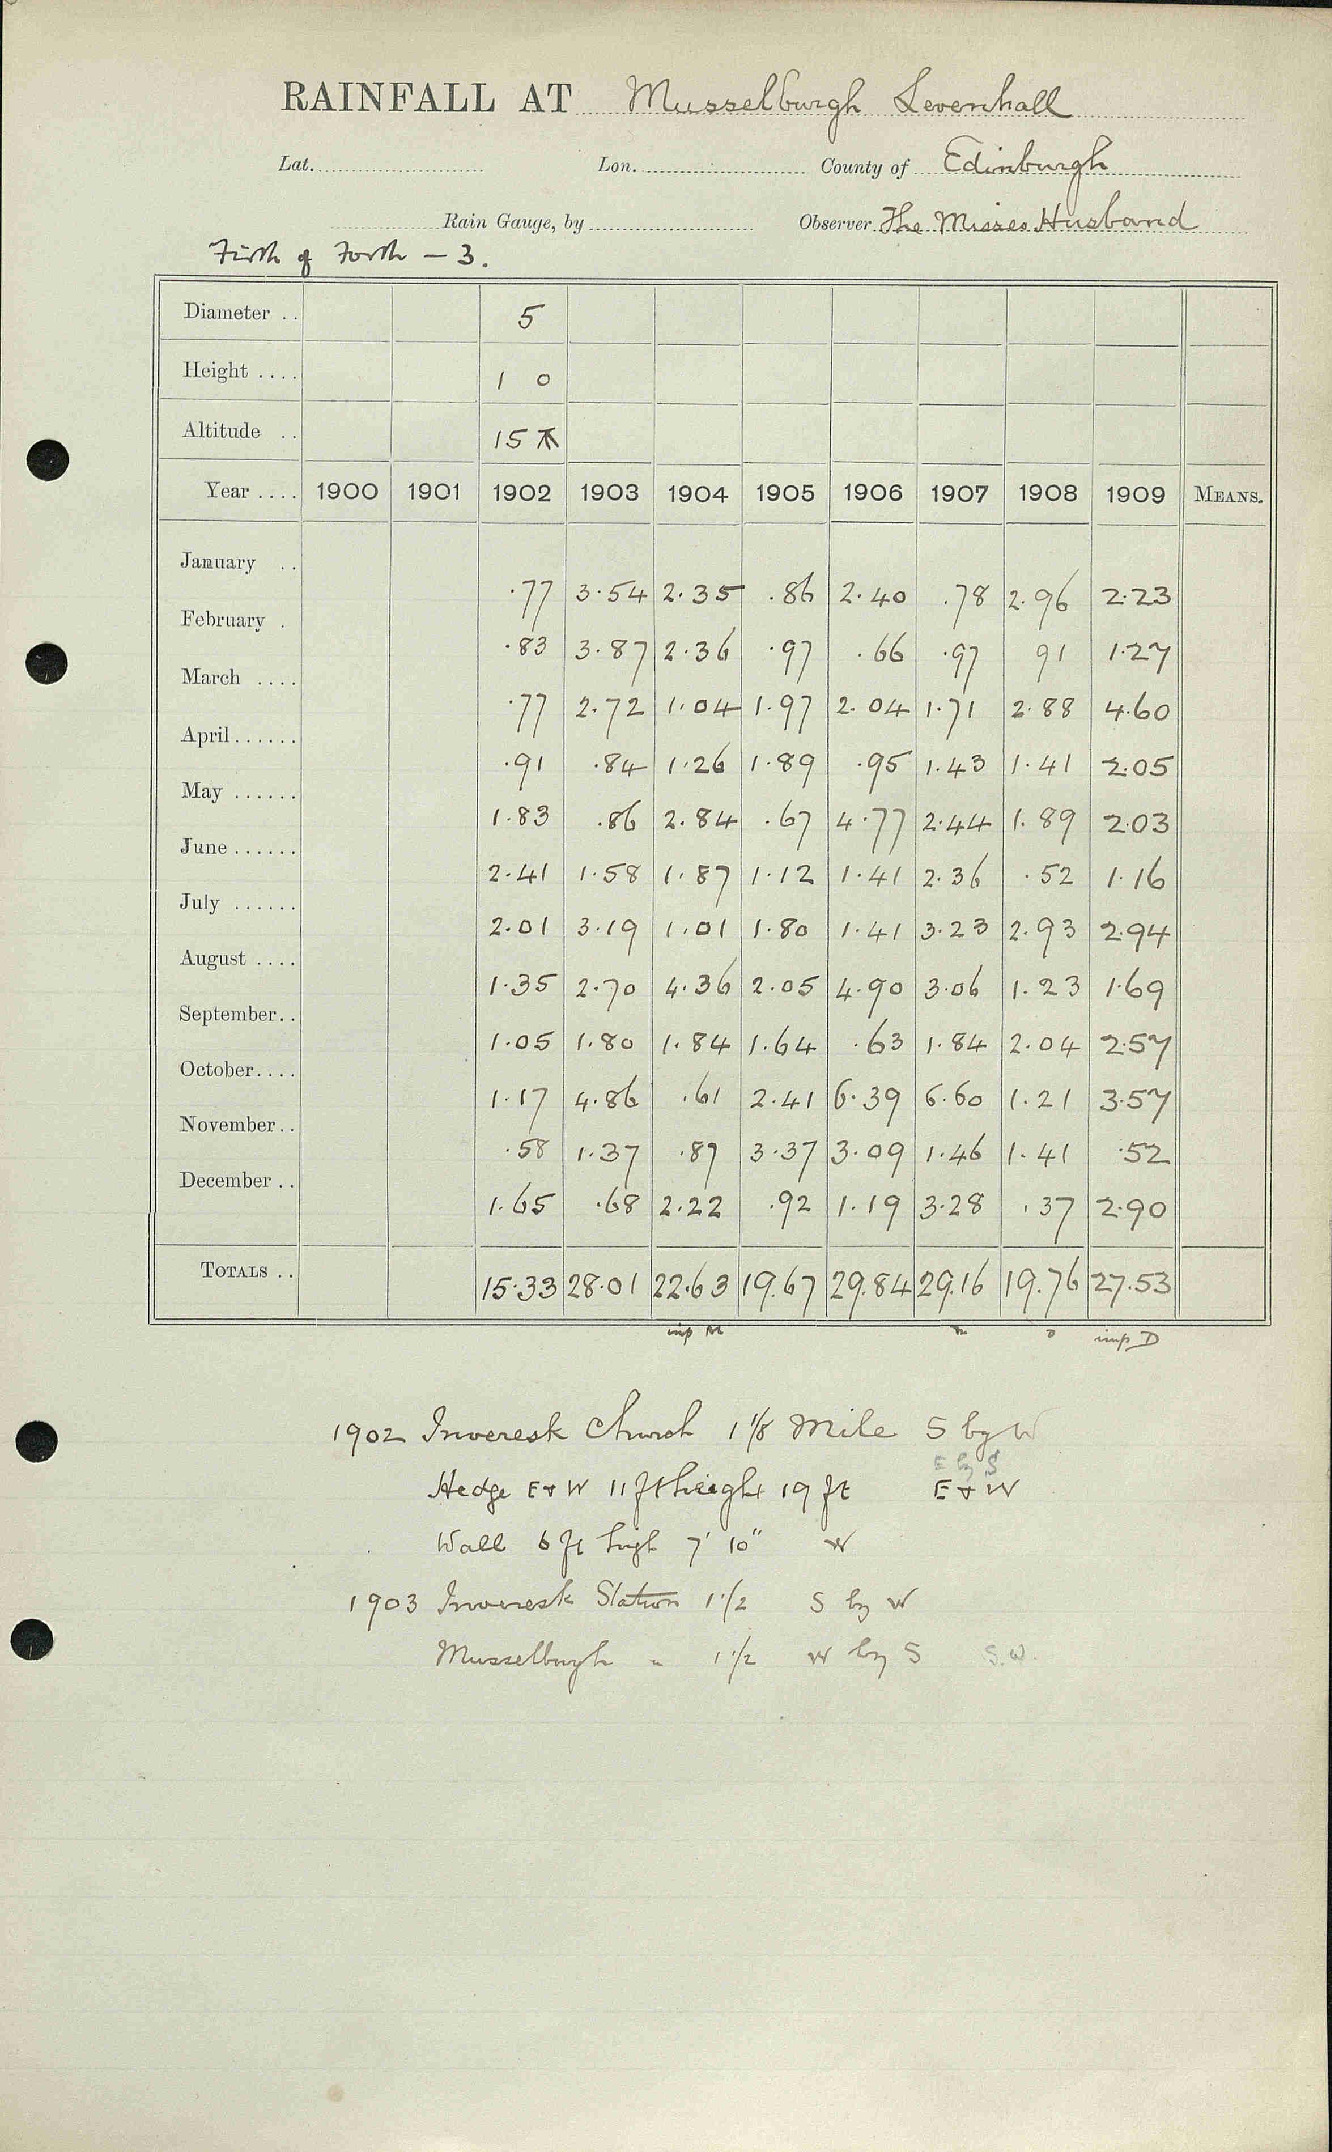 RAINFALL AT Musselburgh Levenhall
Lat. Lon. County of Edinburgh
Rain Gauge, by Observer The Misses Husband
Firth of Forth – 3.
Diameter .. 5
Height .... 1 0
Altitude .. 15
Year .... 1900 1901 1902 1903 1904 1905 1906 1907 1908 1909 MEANS.
January .. ·77 3·54 2·35 ·86 2·40 ·78 2·96 2·23
February . ·83 3·87 2·36 ·97 ·66 ·97 91 1·27
March .... ·77 2·72 1·04 1·97 2·04 1·71 2·88 4·60
April...... ·91 ·84 1·26 1·89 ·95 1·43 1·41 2·05
May ...... 1·83 ·86 2·84 ·67 4·77 2·44 1·89 2·03
June ...... 2·41 1·58 1·87 1·12 1·41 2·36 ·52 1·16
July ...... 2·01 3·19 1·01 1·80 1·41 3·23 2·93 2·94
August .... 1·35 2·70 4·36 2·05 4·90 3·06 1·23 1·69
September.. 1·05 1·80 1·84 1·64 ·63 1·84 2·04 2·57
October.... 1·17 4·86 ·61 2·41 6·39 6·60 1·21 3·57
November.. ·58 1·37 ·87 3·37 3·09 1·46 1·41 ·52
December .. 1·65 ·68 2·22 ·92 1·19 3·28 ·37 2·90
TOTALS .. 15·33 28·01 22·63 19·67 29·84 29·16 19·76 27·53
imp D
1902 Inveresk Church 1 1/8 Mile S by W
E by S
Hedge E & W 11 ft height 19 ft E & W
Wall 6 ft high 7' 10" W
1903 Inveresk Station 1 1/2 S by W
Musselburgh " 1 1/2 W by S S.W.